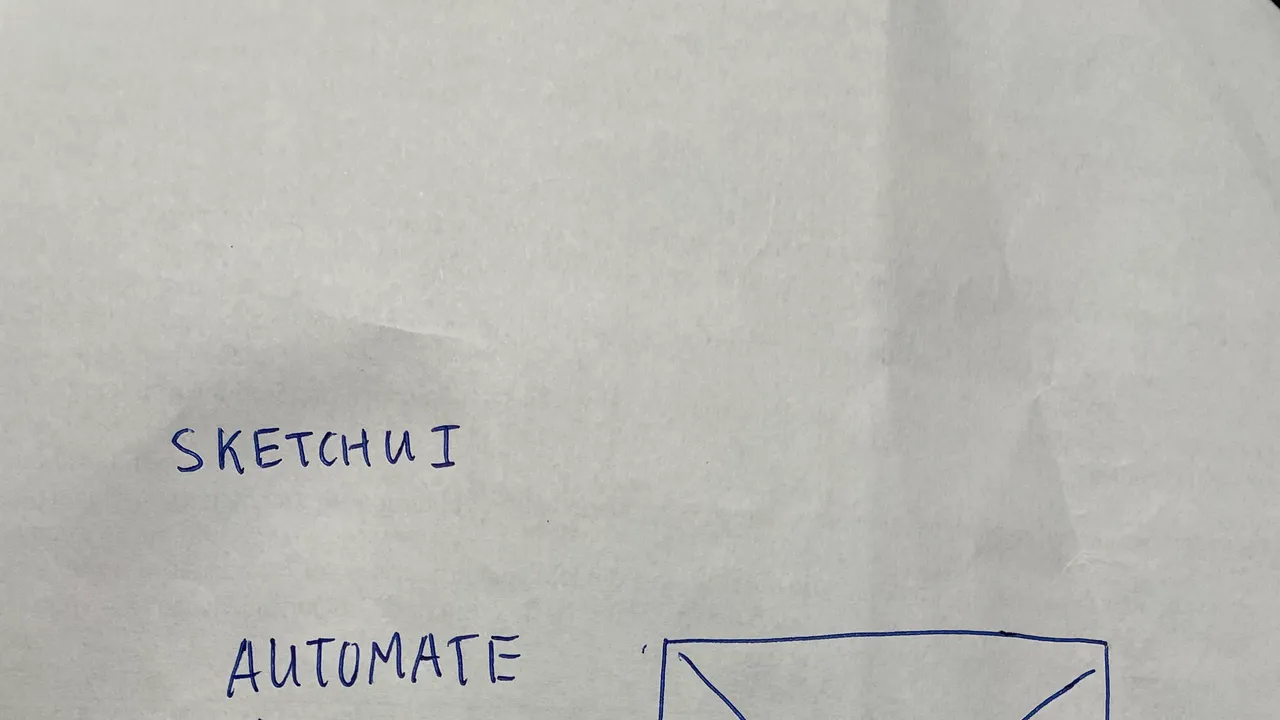 SKETCHUI
AUTOMATE